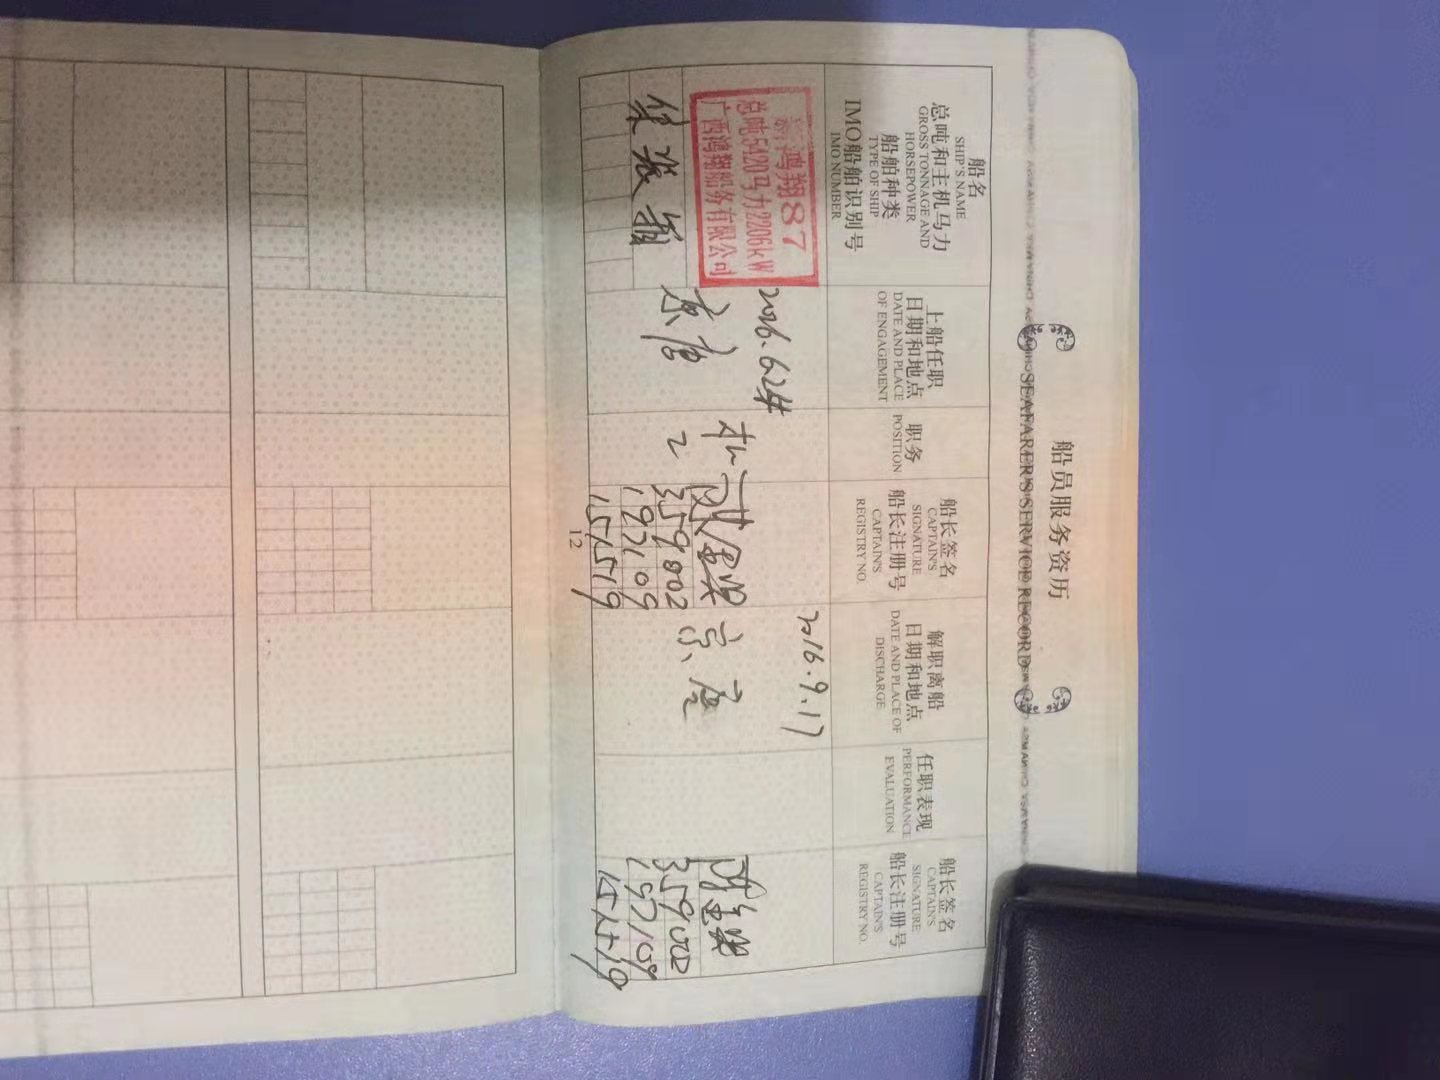 船员服务资历
SEAFARER'S SERVICE RECORD
船名
SHIP'S NAME
总吨和主机马力
GROSS TONNAGE AND
HORSEPOWER
船舶种类
TYPE OF SHIP
IMO船舶识别号
IMO NUMBER
上船任职
日期和地点
DATE AND PLACE
OF ENGAGEMENT
职务
POSITION
船长签名
CAPTAIN'S
SIGNATURE
船长注册号
CAPTAIN'S
REGISTRY NO.
解职离船
日期和地点
DATE AND PLACE OF
DISCHARGE
任职表现
PERFORMANCE
EVALUATION
船长签名
CAPTAIN'S
SIGNATURE
船长注册号
CAPTAIN'S
REGISTRY NO.
鸿翔87
总吨5420马力2206kW
广西鸿翔船务有限公司
集装箱
京唐
359002
197109
2016.9.17
京唐
12